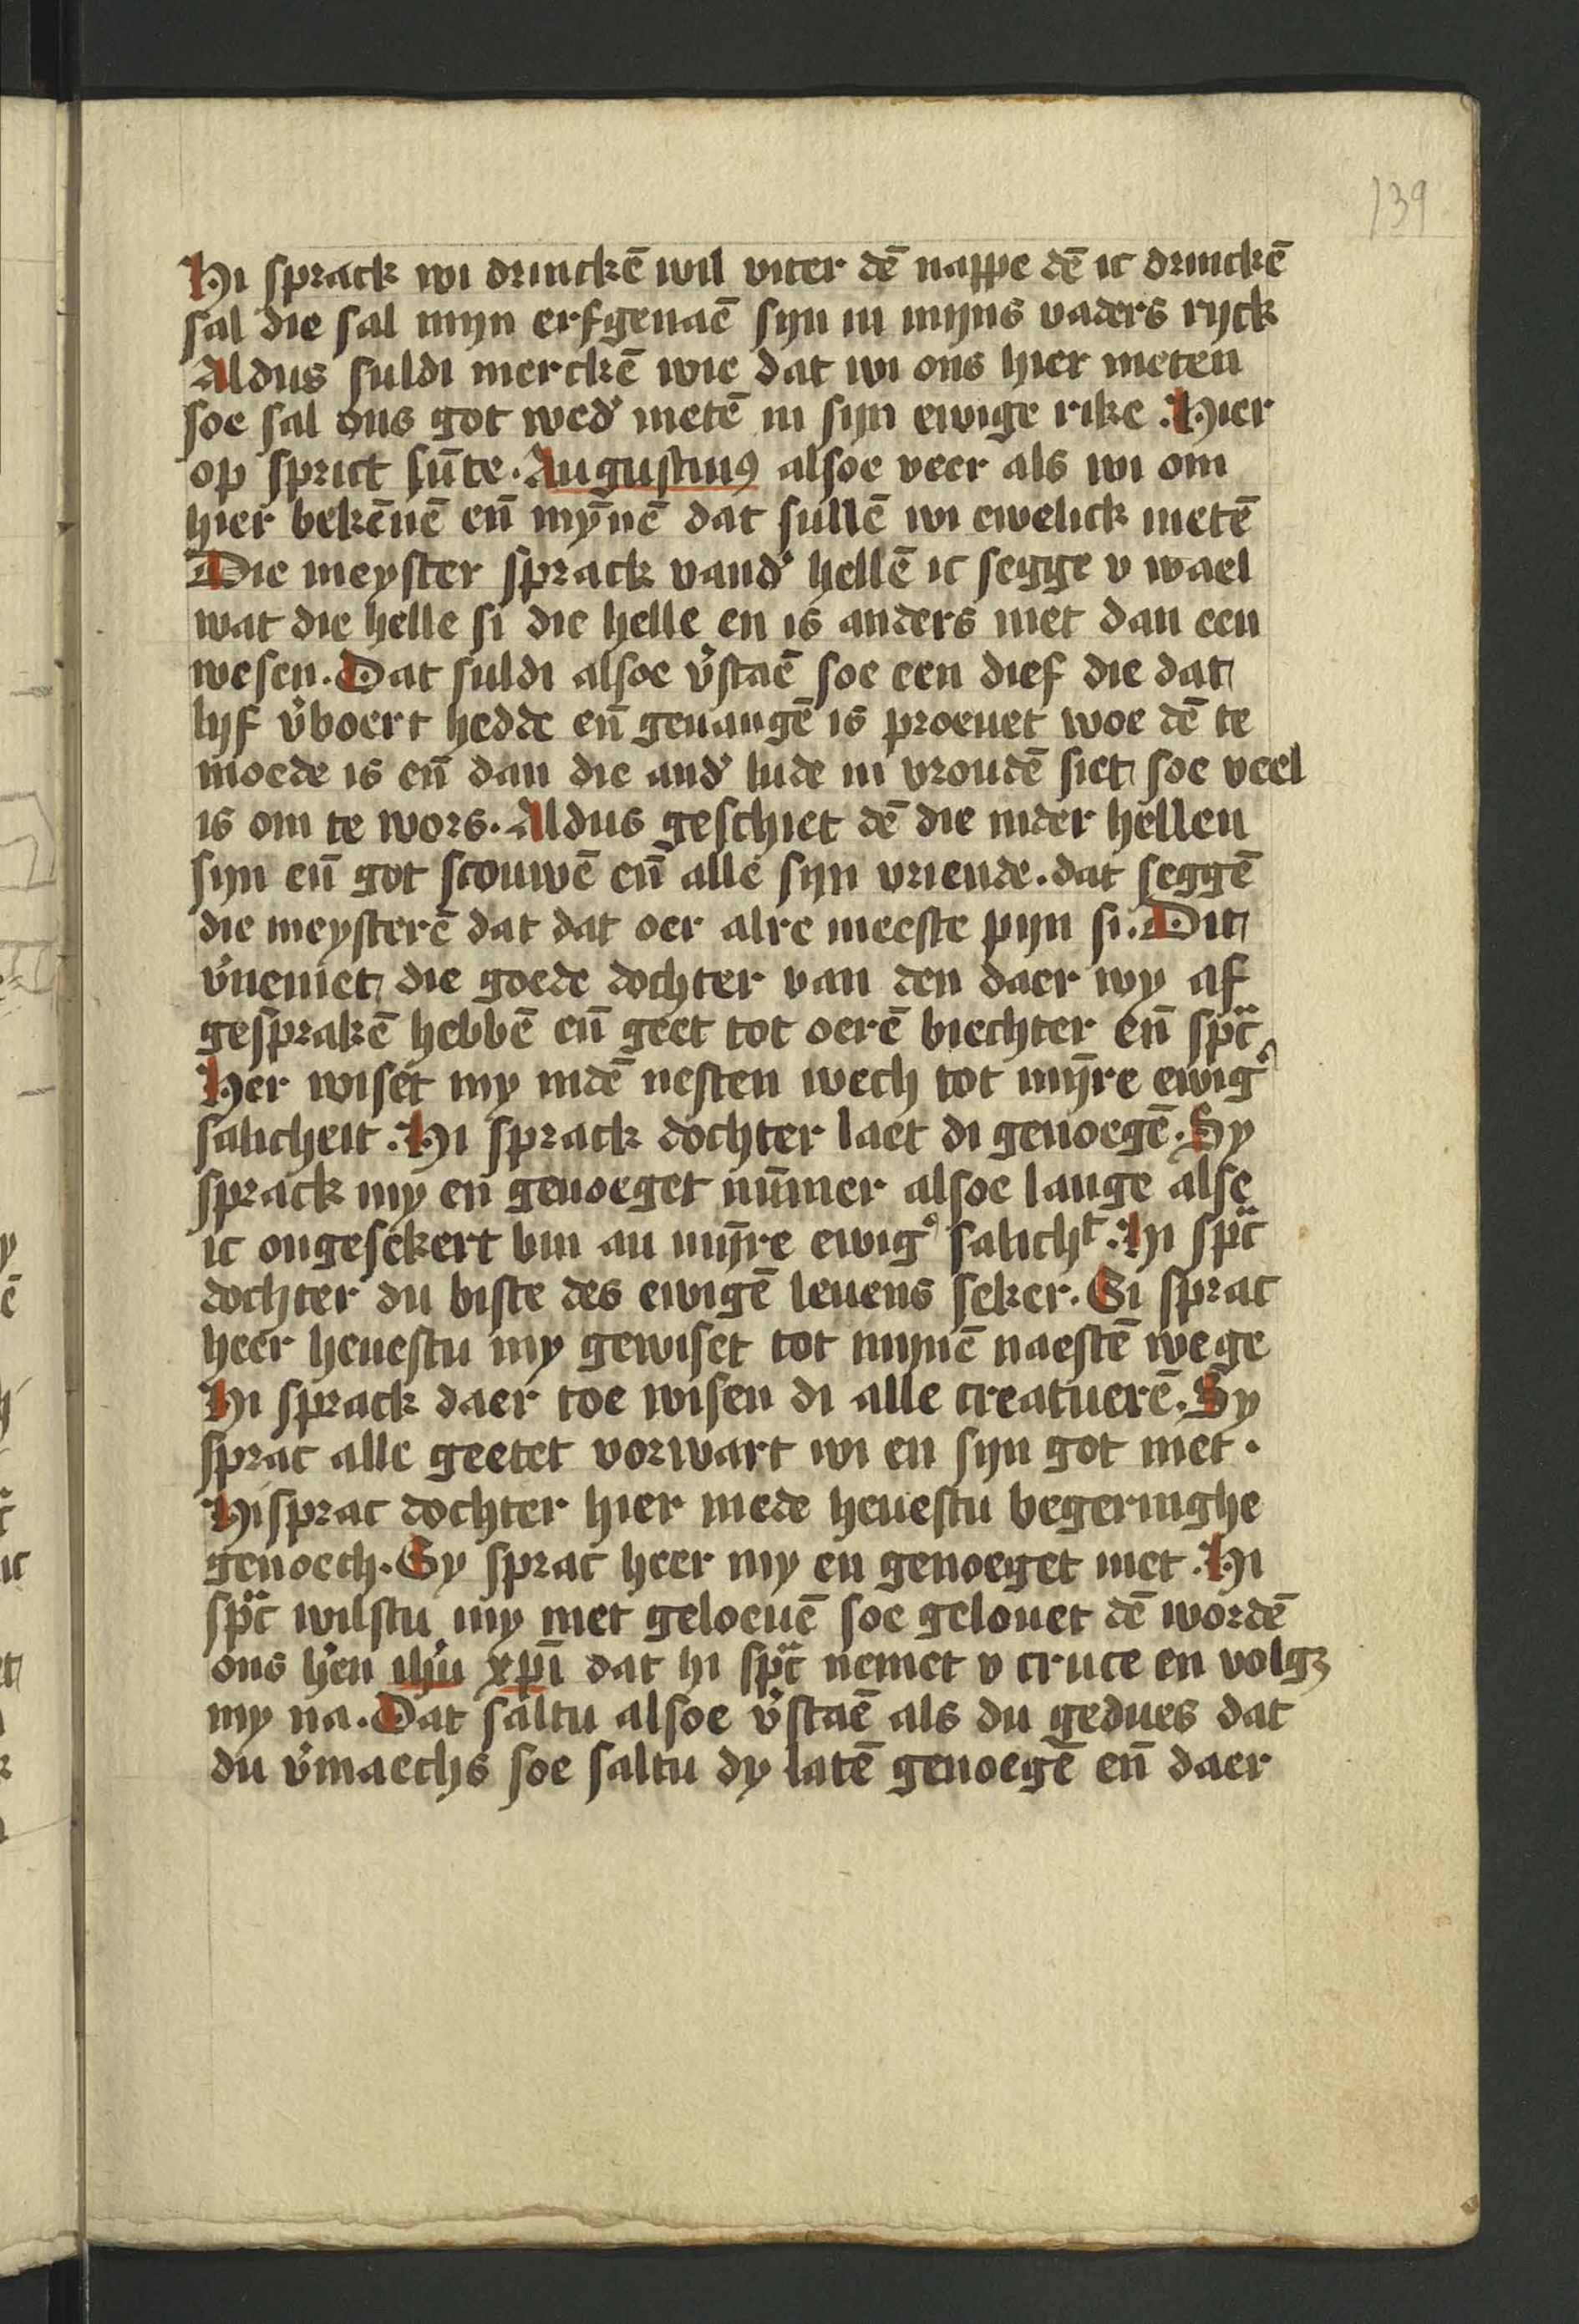 139
Hi sprack wi drinckē wil viter dē nappe dē ic drinckē
sal die sal mijn erfgenaē sijn in mijns vaders rijck
Aldus suldi merckē wie dat wi ons hier meten
soe sal ons got wed' metē in sijn ewige rike. Hier
op sprict sūte. Augustinꝰ alsoe veer als wi om
hier bekēnē eñ mȳnē dat sullē wi ewelick metē
Die meyster sprack vand' hellē ic segge v wael
wat die helle si die helle en is anders niet dan een
wesen. Dat suldi alsoe v'staē soe een dief die dat
lijf v'boert hedde eñ geuangē is proeuet woe dē te
moede is eñ dan die and' lude in vroudē siet soe veel
is om te wors. Aldus geschiet dē die inder hellen
sijn eñ got scouwē eñ alle sijn vriende. dat seggē
die meysterē dat dat oer alre meeste pijn si. Dit
v'neniet die goede dochter van den daer wy af
gesprakē hebbē eñ geet tot oerē biechter eñ spᵃc
Her wiset my indē nesten wech tot mijre ewig'
salicheit. Hi sprack dochter laet di genoegē. Sy
sprack my en genoeget nūmer alsoe lange alse
ic ongesekert bin an mijre ewig' salichᵗ. Hi spᵃc
dochter du biste des ewigē leuens seker. Si sprac
heer heuestu my gewiset tot mijnē naestē wege
Hi sprack daer toe wisen di alle creatuerē. Sy
sprac alle geetet vorwart wi en sijn got niet.
Hi sprac dochter hier mede heuestu begeringhe
genoech. Sy sprac heer my en genoeget niet. Hi
spᵃc wilstu my niet geloeuē soe gelouet dē wordē
ons h'en ih'u xp̄i dat hi spᵃc nemet v cruce en volgꝫ
my na. Dat saltu alsoe v'staē als du gedues dat
du v'maechs soe saltu dy latē genoegē eñ daer